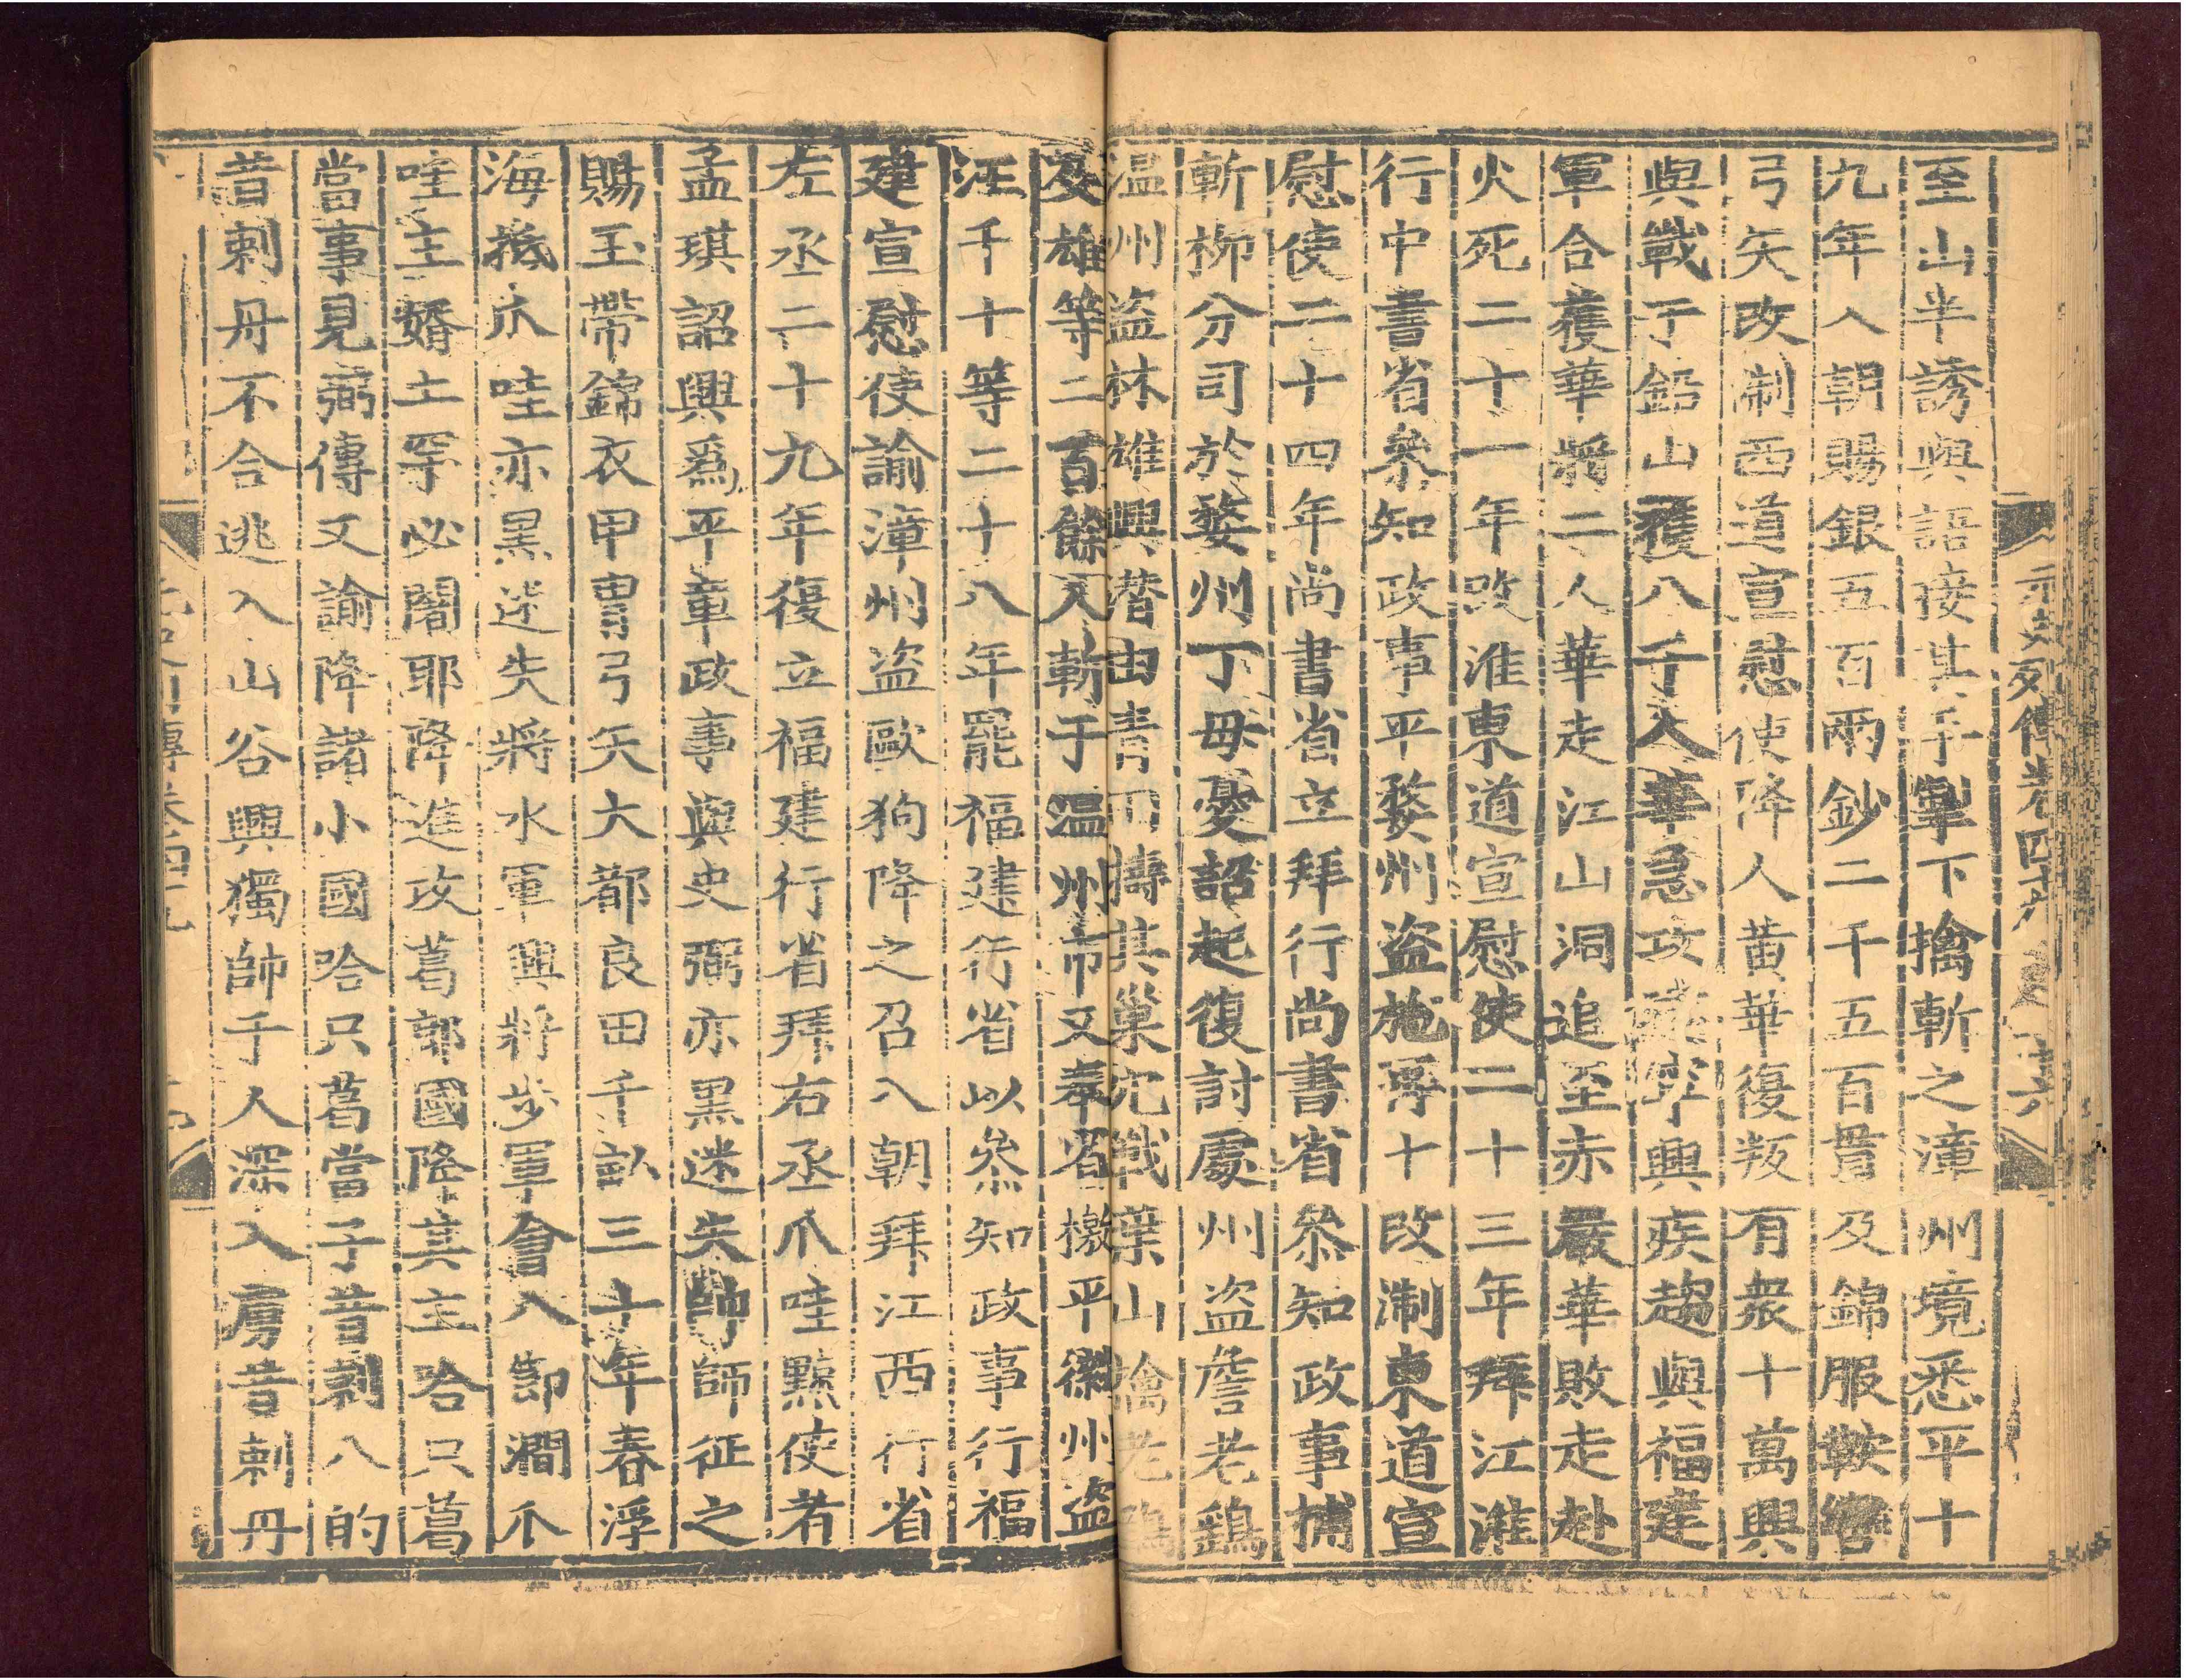 至山半誘與語接其手掣下擒斬之漳州境悉平十
九年入朝賜銀五百兩鈔二千五百貫及錦服鞍轡
弓矢改制西道宣慰使降人黃華復叛有衆十萬興
與戰于鉛山獲八千人華急攻建寧興疾趨與福建
軍合獲華將二人華走江山洞追至赤嚴華敗走赴
火死二十一年改淮東道宣慰使二十三年拜江淮
行中書省叅知政事平婺州盗施再十改淛東道宣
慰使二十四年尚書省立拜行尚書省叅知政事捕
斬栁分司於婺州丁母憂詔起復討處州盗詹老鷂
温州盗林雄興潜由青田擣其巢穴戰葉山擒老鷂
及雄等二百餘人斬于温州市又奉省檄平徽州盗
汪千十等二十八年罷福建行省以叅知政事行福
建宣慰使諭漳州盗歐狗降之召入朝拜江西行省
左丞二十九年復立福建行省拜右丞爪哇黥使者
孟琪詔興爲平章政事與史弼亦黑迷失帥師征之
賜玉帶錦衣甲冑弓矢大都良田千畝三十年春浮
海抵爪哇亦黑迷失將水軍興將步軍會八節澗爪
哇主婿土罕必闍耶降進攻葛郎國降其主哈只葛
當事見弼傳又諭降諸小國哈只葛當子昔剌八的
昔剌丹不合逃入山谷興獨帥千人深入虜昔剌丹